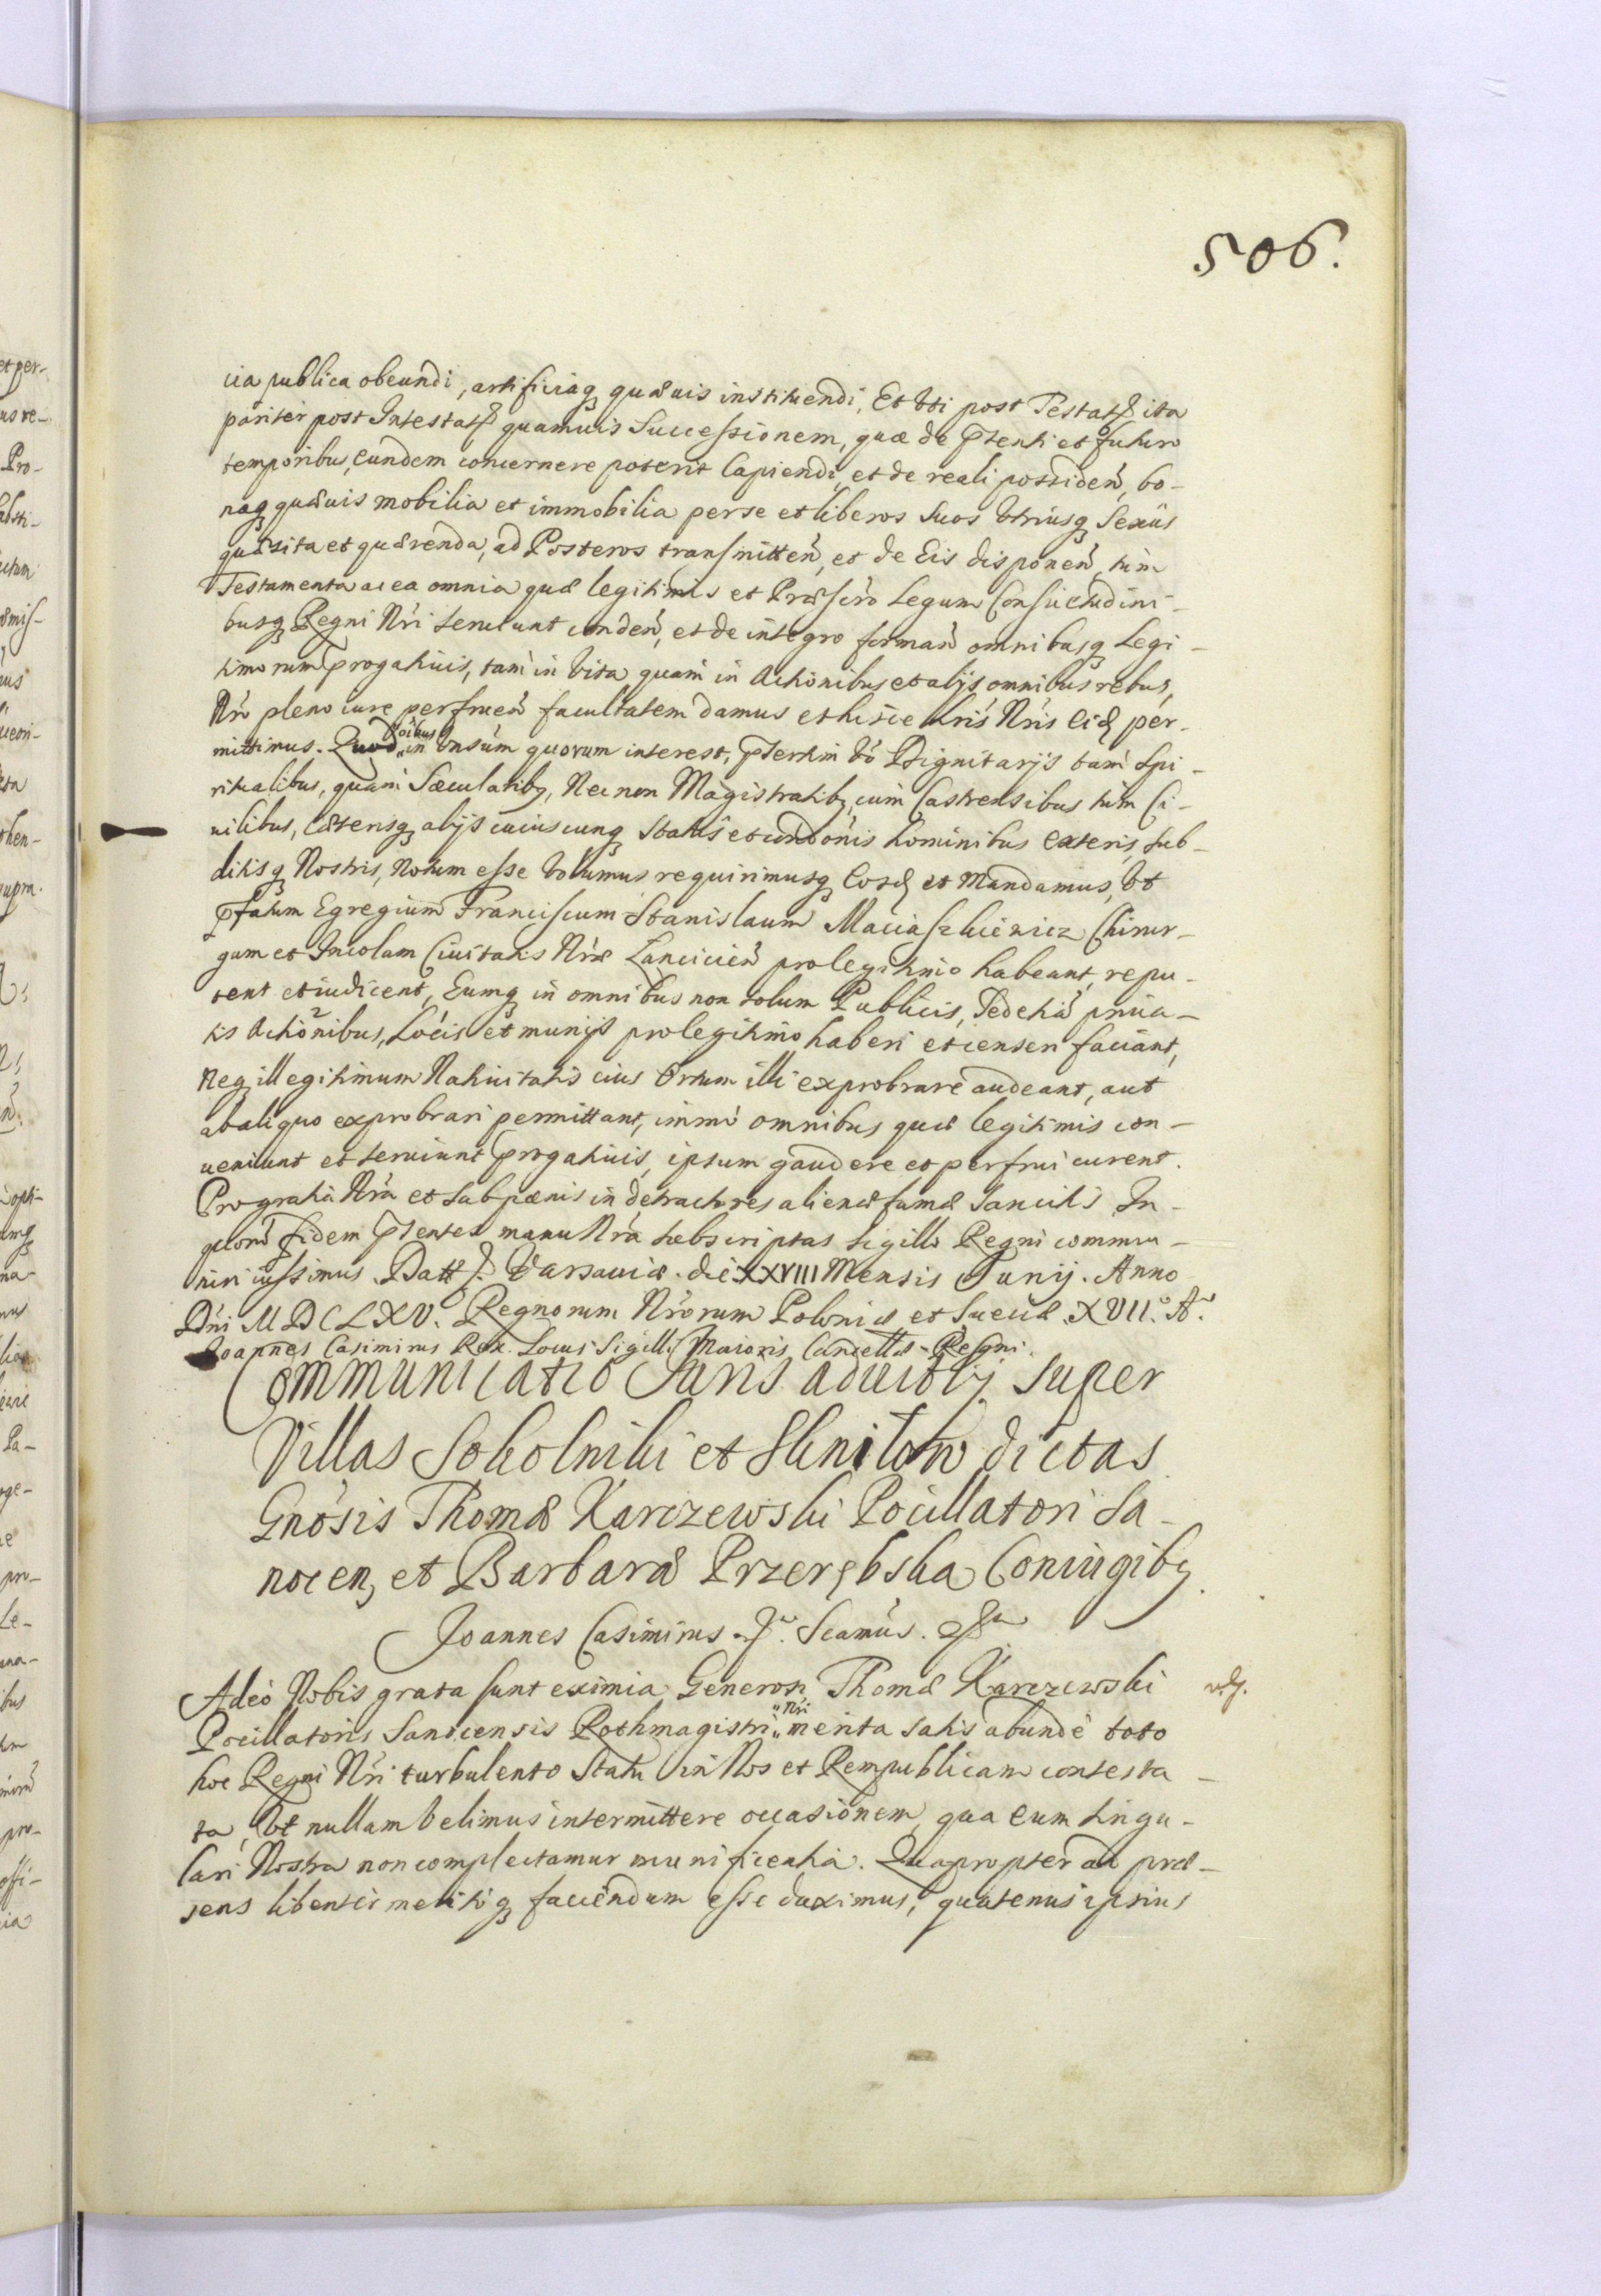 506.
cia publica obeundi, artificiaq quævis instituendi, Et Vti post Testatꝭ ita
pariter post Intestatꝭ quamuis Successionem, quæ de pr̃senti et futuro
temporibus, eundem concernere poterit Capiendi, et de reali possideñ, bo-
naq quæuis mobilia et immobilia per se et liberos Suos Vtriusq Sexús
quæsita et quærenda, ad Posteros transmitteñ, et de Eis disponeñ, tùm
Testamenta ac ea omnia quæ legitimis et Præscr̃o Legum Consuetudini-
busq Regni Nr̃i seruiunt condeñ, et de integro formañ omnibusq Legi-
timorum pr̃rogatiuis, tàm in Vita quam in Actionibus et alijs omnibus rebus,
Nr̃o pleno iure perfrueñ facultatem damus et hisce Lr̃is Nr̃is Eid per-
mittimus. Quod oĩbus in Vnsũm quorum interest, pr̃sertim Vò Dignitarijs tàm Spi-
ritualibus, quàm Sæcularibꝫ, Nec non Magistratibꝫ, cùm Castrensibus tùm Ci-
uilibus, Cæterisq alijs cuiuscunq Statûs et condõnis hominibus exteris, sub-
ditisq Nostris, Notum esse Volumus, requirimusq Eosd et Mandamus, Vt
pr̃fatum Egregium Franciscum Stanislaum Maciaszkiewicz Chirur-
gum et Incolam Ciuitatis Nr̃æ Lancicieñ pro legitimo habeant, repu-
tent et iudicent, Eumq in omnibus non solum Publicis, Sed etiã priua-
tis Actionibus, Locis et munijs pro legitimo haberi et censeri faciant,
Neq illegitimum Natiuitatis eius Ortum illi exprobrare audeant, aut
ab aliquo exprobrari permittant, immò omnibus quæ legitimis con-
ueniunt et seruiunt pr̃rogatiuis, ipsum gaudere et perfrui curent.
Pro gratia Nr̃a et sub pænis in detractores alienæ famæ sancitis In-
quorũ fidem pr̃sentes manu Nr̃a subscriptas sigillo Regni commu-
niri iussimus. Datt ꝭ. Varsauiæ. die XXVIII Mensis Junij. Anno
Dñi MDCLXV. Regnorum Nr̃orum Poloniæ et Sueciæ. XVII.° A°.
Joannes Casimirus Rex. Locus Sigilli Maioris Cancellæ Regni.
Communicatio Juris aduitlij super
Villas Sokolniki et Sknilow dictas
Gnõsis Thomæ Karczewski Pocillatori Sa-
nocen, et Barbaræ Przerębska Coniugibꝫ.
Joannes Casimirus ꝭ. Seamus.
Adeò Nobis grata sunt eximia Generosi Thomæ Karczewski
Pocillatoris Sanocensis Rothmagistri Nr̃i merita satis abunde toto
hoc Regni Nr̃i turbulento Statu in Nos et Rempublicam contesta-
ta, Vt nullam velimus intermittere occasionem, qua eum singu-
lari Nostra non complectamur munificentia. Quapropter ad præ-
sens libentèr meritòq faciendum esse duximus, quatenus ipsius